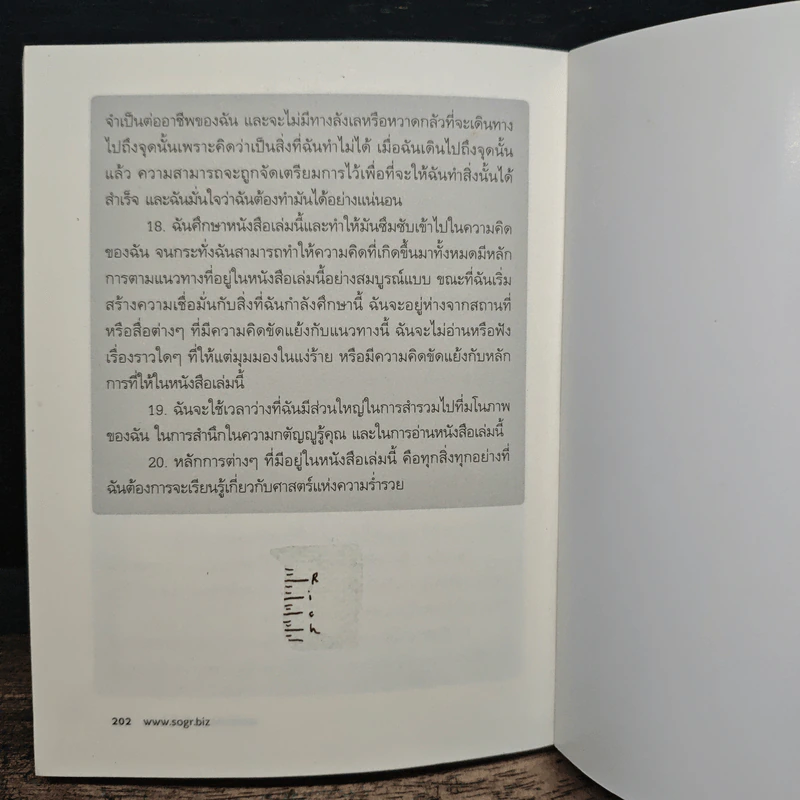 จำเป็นต่ออาชีพของฉัน และจะไม่มีทางลังเลหรือหวาดกลัวที่จะเดินทาง
ไปถึงจุดนั้นเพราะคิดว่าเป็นสิ่งที่ฉันทำไม่ได้ เมื่อฉันเดินไปถึงจุดนั้น
แล้ว ความสามารถจะถูกจัดเตรียมการไว้เพื่อที่จะให้ฉันทำสิ่งนั้นได้
สำเร็จ และฉันมั่นใจว่าฉันต้องทำมันได้อย่างแน่นอน
18. ฉันศึกษาหนังสือเล่มนี้และทำให้มันซึมซับเข้าไปในความคิด
ของฉัน จนกระทั่งฉันสามารถทำให้ความคิดที่เกิดขึ้นมาทั้งหมดมีหลัก
การตามแนวทางที่อยู่ในหนังสือเล่มนี้อย่างสมบูรณ์แบบ ขณะที่ฉันเริ่ม
สร้างความเชื่อมั่นกับสิ่งที่ฉันกำลังศึกษานี้ ฉันจะอยู่ห่างจากสถานที่
หรือสื่อต่างๆ ที่มีความคิดขัดแย้งกับแนวทางนี้ ฉันจะไม่อ่านหรือฟัง
เรื่องราวใดๆ ที่ให้แต่มุมมองในแง่ร้าย หรือมีความคิดขัดแย้งกับหลัก
การที่ให้ในหนังสือเล่มนี้
19. ฉันจะใช้เวลาว่างที่ฉันมีส่วนใหญ่ในการสำรวมไปที่มโนภาพ
ของฉัน ในการสำนึกในความกตัญญูรู้คุณ และในการอ่านหนังสือเล่มนี้
20. หลักการต่างๆ ที่มีอยู่ในหนังสือเล่มนี้ คือทุกสิ่งทุกอย่างที่
ฉันต้องการจะเรียนรู้เกี่ยวกับศาสตร์แห่งความร่ำรวย
R
i
c
h
202 www.sogr.biz